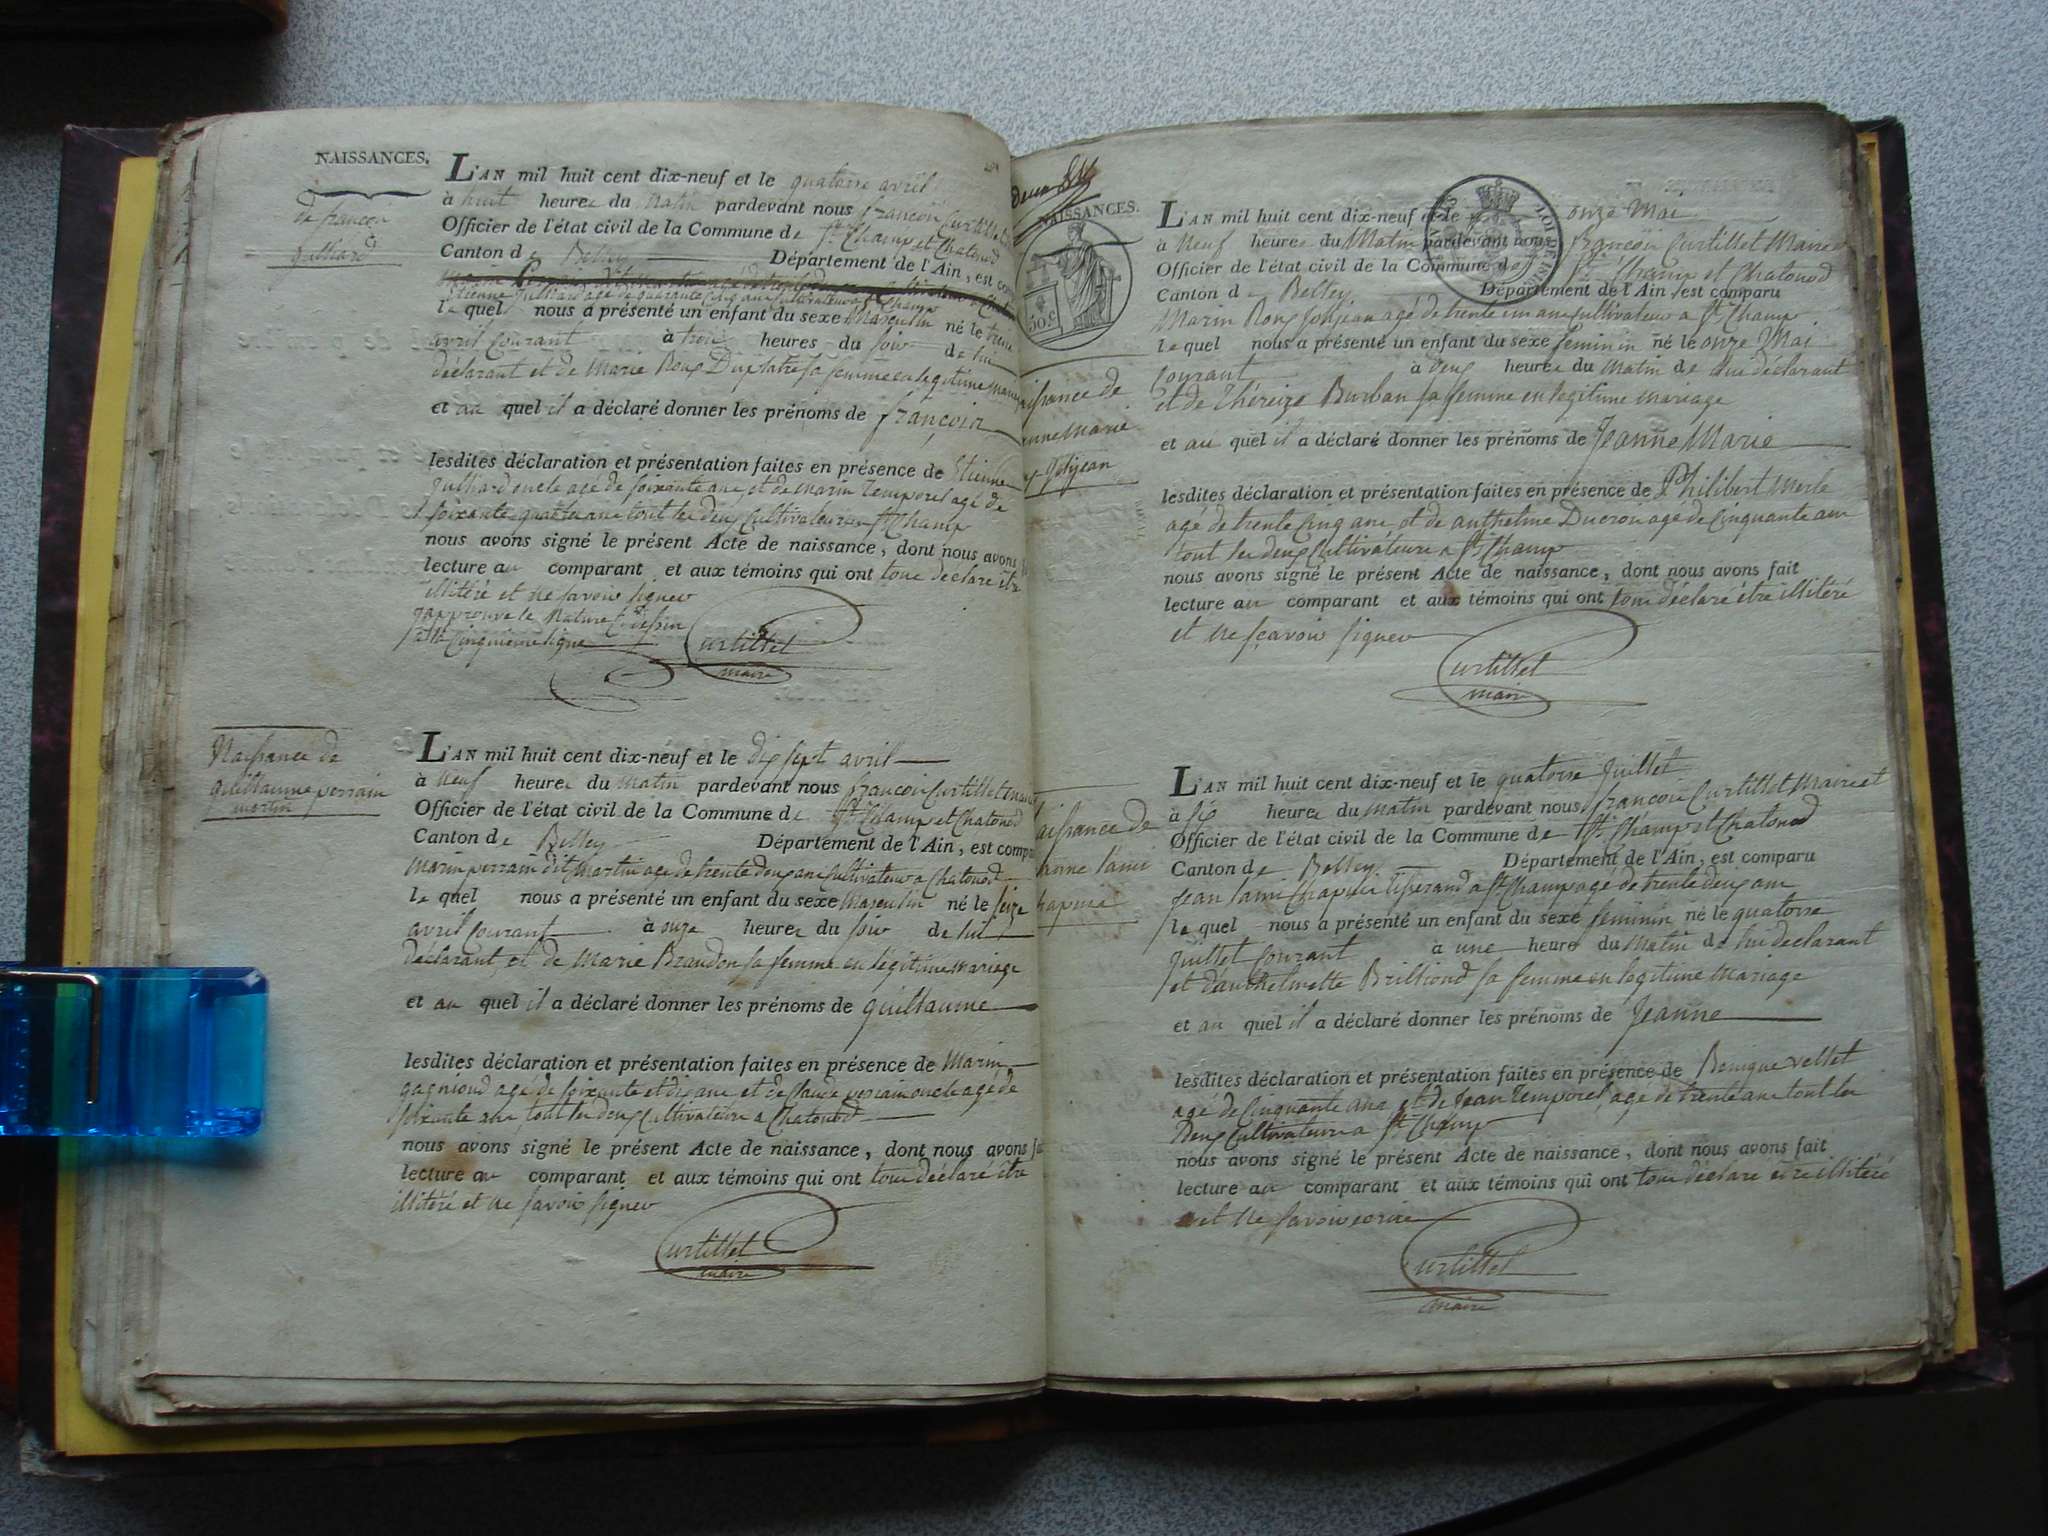 NAISSANCES.
de françois
Julliard
L'AN mil huit cent dix-neuf et le quatorze avril
à huit heures du Matin pardevant nous françois Curtillet
Officier de l'état civil de la Commune de St Champ et Chatonod
Canton de Belley Département de l'Ain, est com
Etienne Julliard agé de quarante cinq ans Cultivateur a St Champ
le quel nous a présenté un enfant du sexe Masculin né le treize
avril Courant à trois heures du soir de lui
déclarant et de Marie Roux sa femme en légitime
et au quel il a déclaré donner les prénoms de françois
lesdites déclaration et présentation faites en présence de Etienne
Julliard oncle agé de soixante ans et de Marin Temporel agé de
soixante quatre ans tout les deux Cultivateurs a St Champ
nous avons signé le présent Acte de naissance, dont nous avons
lecture au comparant et aux témoins qui ont tous déclaré être
illitéré et ne savoir signer
japprouve la Rature Ci dessus
a la Cinquième ligne
Curtillet
maire
Naissance de
guillaume perrain
martin
L'AN mil huit cent dix-neuf et le dix sept avril
à Neuf heures du Matin pardevant nous françois Curtillet maire
Officier de l'état civil de la Commune de St Champ et Chatonod
Canton de Belley Département de l'Ain, est compa
Marin perrain dit Martin agé de trente deux ans Cultivateur a Chatonod
le quel nous a présenté un enfant du sexe Masculin né le seize
avril Courant à onze heures du soir de lui
déclarant et de Marie Brandon sa femme en légitime Mariage
et au quel il a déclaré donner les prénoms de guillaume
lesdites déclaration et présentation faites en présence de Marin
gagniond agé de soixante et dix ans et de Claude perrain oncle agé de
soixante ans tout les deux Cultivateurs a Chatonod
nous avons signé le présent Acte de naissance, dont nous avons
lecture au comparant et aux témoins qui ont tous déclaré être
illitéré et ne savoir signer
Curtillet
maire
NAISSANCES.
50.c
aissance de
anne Marie
Jolijean
L'AN mil huit cent dix-neuf et le onze Mai
à Neuf heures du Matin pardevant nous françois Curtillet Maire
Officier de l'état civil de la Commune de St Champ et Chatonod
Canton de Belley Département de l'Ain, est comparu
Marin Roux Jolijean agé de trente un ans Cultivateur a St Champ
le quel nous a présenté un enfant du sexe feminin né le onze Mai
Courant à deux heures du Matin de lui déclarant
et de Théreize Burban sa femme en légitime Mariage
et au quel il a déclaré donner les prénoms de Jeanne Marie
lesdites déclaration et présentation faites en présence de Philibert Merle
agé de trente Cinq ans et de anthelme Ducroi agé de Cinquante ans
tout les deux Cultivateurs a St Champ
nous avons signé le présent Acte de naissance, dont nous avons fait
lecture au comparant et aux témoins qui ont tous déclaré être illitéré
et ne sçavoir signer
Curtillet
maire
aissance de
L'AN mil huit cent dix-neuf et le quatorze Juillet
à Six heures du Matin pardevant nous françois Curtillet Maire et
Officier de l'état civil de la Commune de St Champ et Chatonod
Canton de Belley Département de l'Ain, est comparu
Jean lami Chapuis Tisserand a St Champ agé de trente deux ans
le quel nous a présenté un enfant du sexe feminin né le quatorze
Juillet Courant à une heure du Matin de lui déclarant
et d'anthelmette Brilliond sa femme en légitime Mariage
et au quel il a déclaré donner les prénoms de Jeanne
lesdites déclaration et présentation faites en présence de Benigue vellet
agé de Cinquante ans et de Jean Temporel agé de trente ans tout les
deux Cultivateurs a St Champ
nous avons signé le présent Acte de naissance, dont nous avons fait
lecture au comparant et aux témoins qui ont tous déclaré être illitéré
et ne savoir ecrire
Curtillet
maire